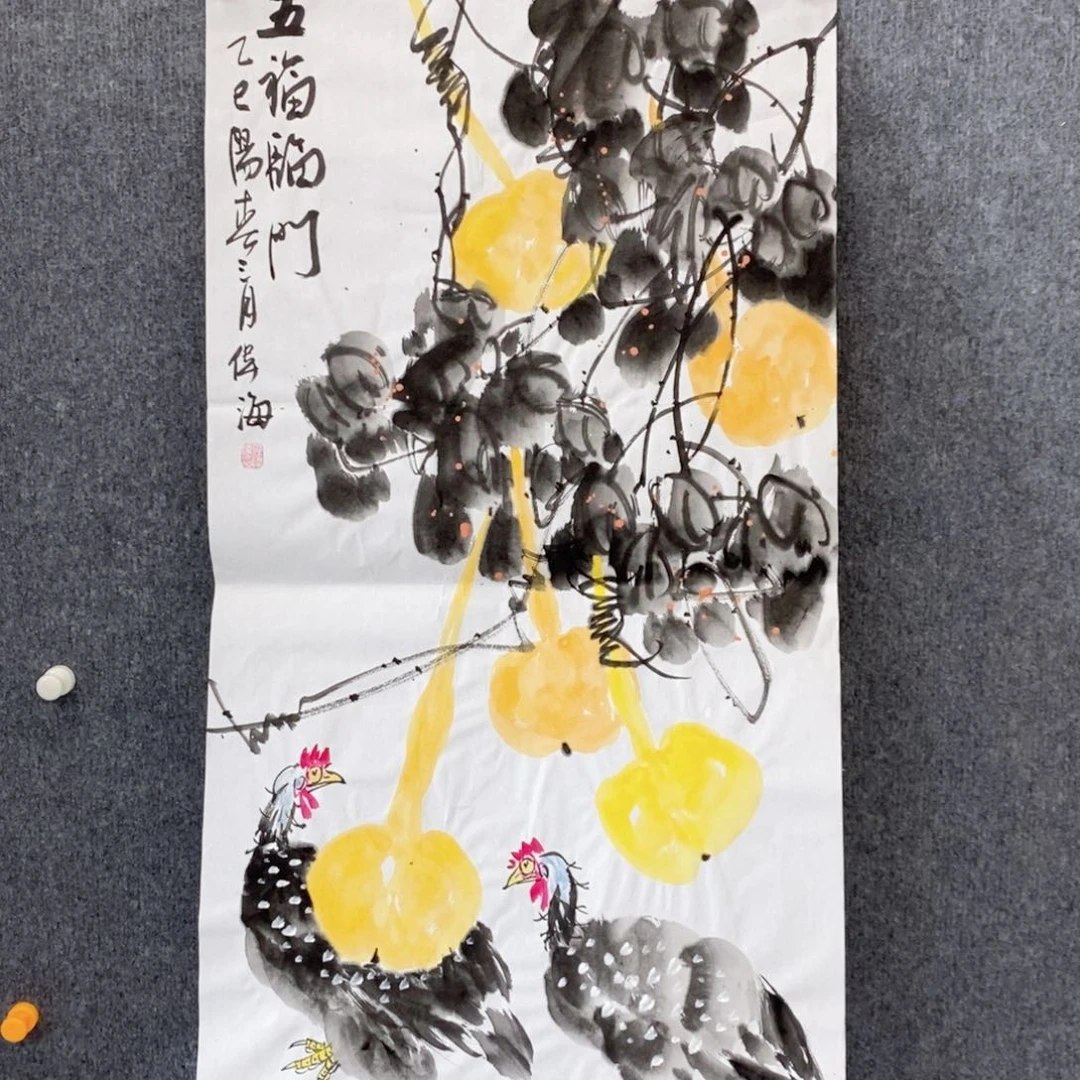 五福臨門
乙巳陽春三月保海